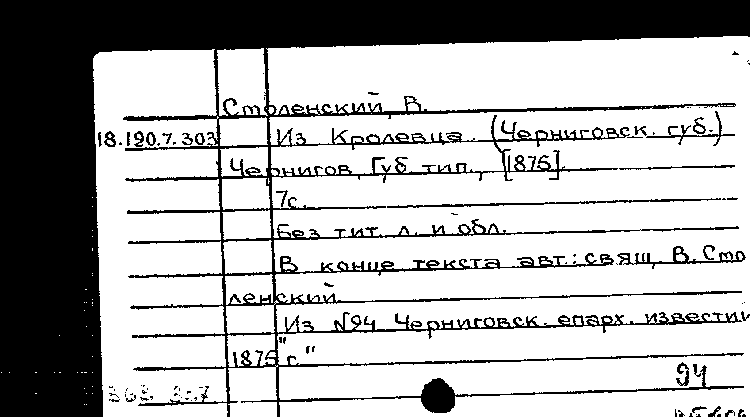 Столенский, В.
18.190.7.303 Из Кролевца. (Черниговск. губ.)
Чернигов, Губ. тип., [1875].
7с.
Без тит. л. и обл.
В конце текста авт.: свящ. В. Сто
ленский.
Из №94 Черниговск. епарх. известий
1875 г."
94